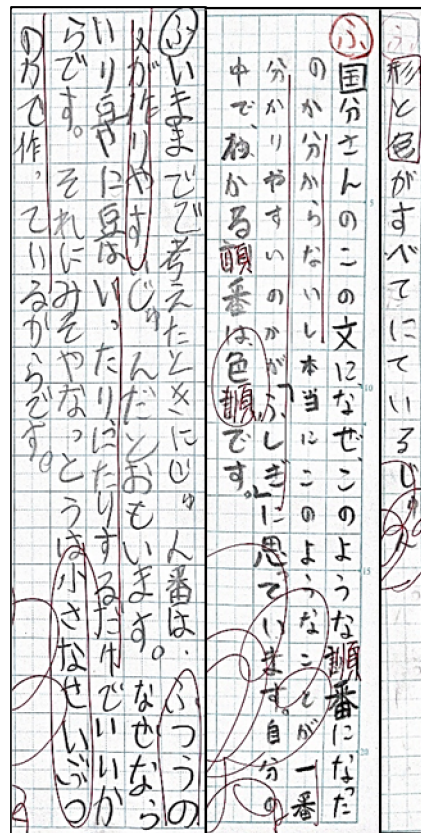 ふ形と色がすべてにているじゅん
ふ国分さんのこの文になぜ、このような順番になった
のか分からないし本当にこのようなことが一番
分かりやすいのかが「ふしぎ」に思っています。自分の
中で、わかる順番は色順です。
ふいままでで考えたときにじゅん番は、ふつうの
人が作りやすいじゅんだとおもいます。なぜなら
いり豆やに豆はいったりにたりするだけでいいか
らです。それにみそやなっとうは小さなせいぶつ
の力で作っているからです。